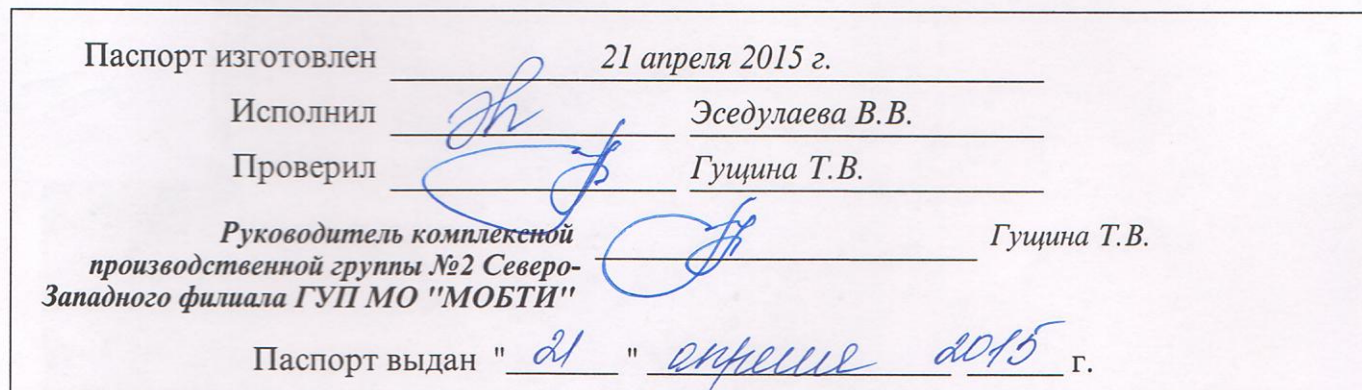 Паспорт изготовлен 21 апреля 2015 г.
Исполнил Эседулаева В.В.
Проверил Гущина Т.В.
Руководитель комплексной Гущина Т.В.
производственной группы №2 Северо-
Западного филиала ГУП МО "МОБТИ"
Паспорт выдан " 21 " апреля 2015 г.